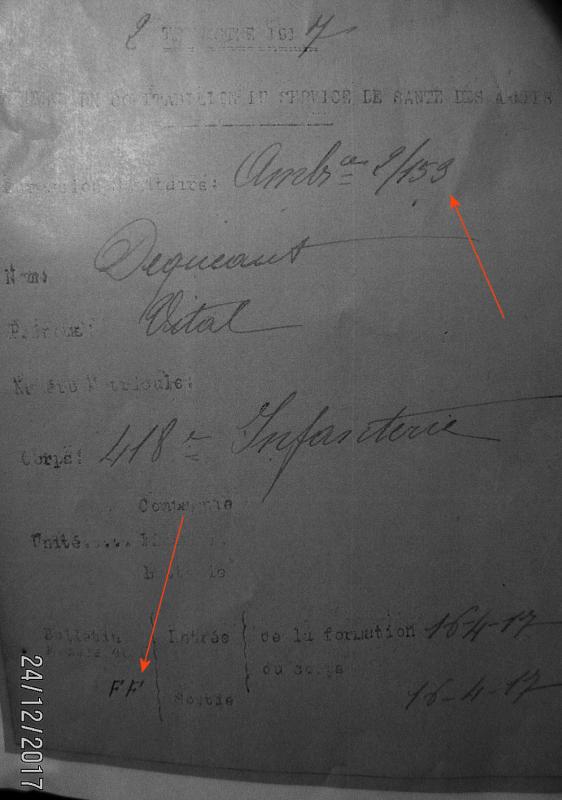 2 TRIMESTRE 1917
DU SERVICE DE SANTE DES ARMEES
Formation Sanitaire: Ambce 2/153
Nom: Dequeant
Prénom: Vital
Numéro Matricule:
Corps: 418e Infanterie
Compagnie
Unité.....
Batterie
Bulletin Entrée de la formation 16-4-17
du corps
FF Sortie 16-4-17
24/12/2017